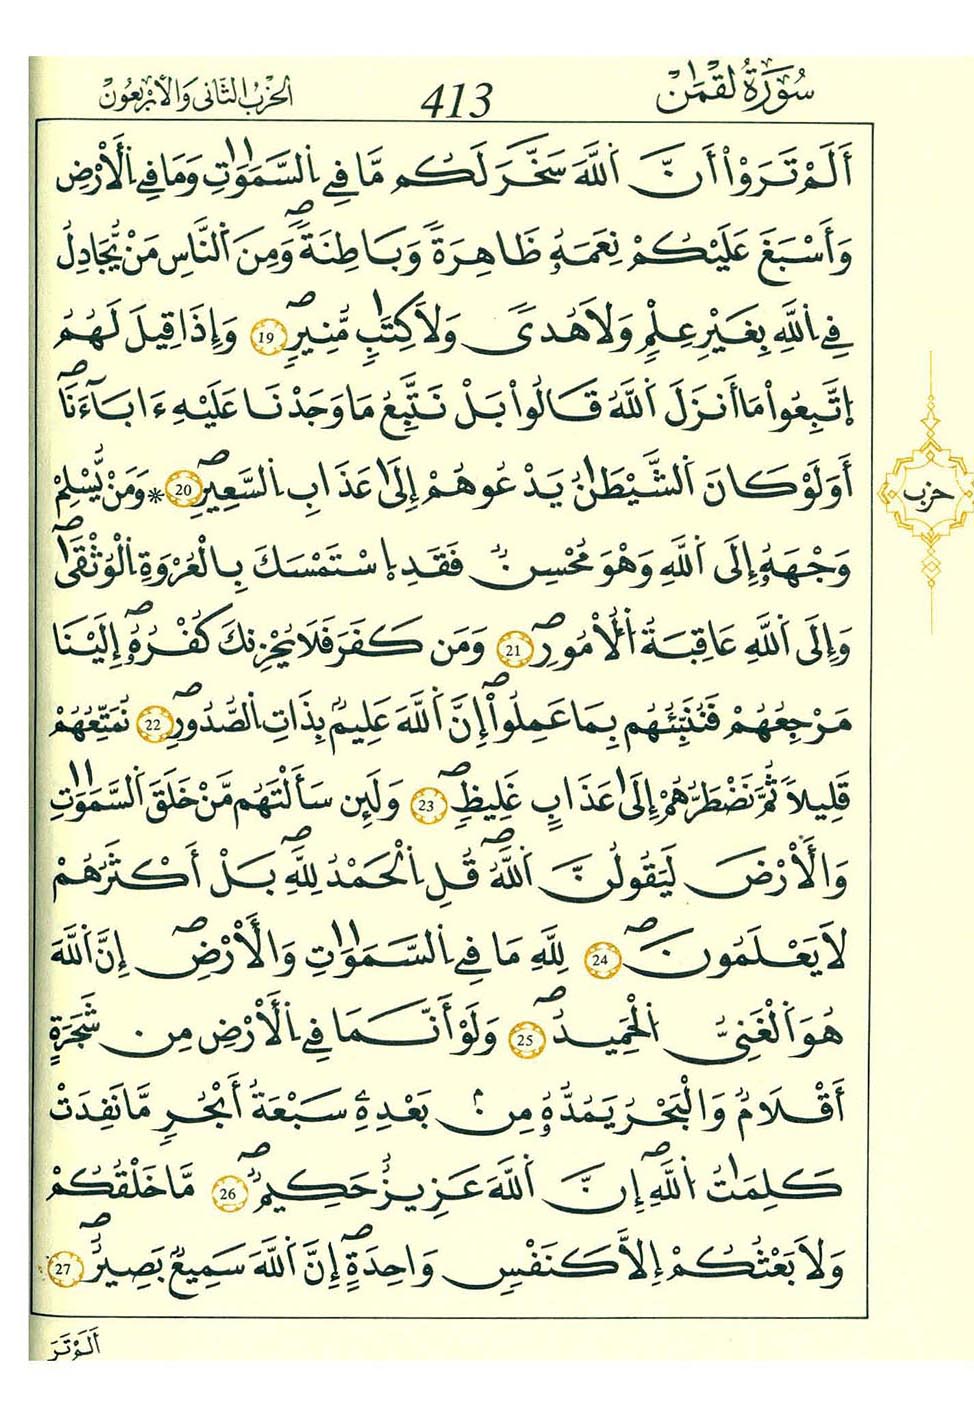 سُورَةُ لُقْمَٰن
413
الحِزْبُ الثَّانِي وَالأَرْبَعُون
أَلَمْ تَرَوْاْ أَنَّ اَ۬للَّهَ سَخَّرَ لَكُم مَّا فِے اِ۬لسَّمَٰوَٰتِ وَمَا فِے اِ۬لَارْضِ
وَأَسْبَغَ عَلَيْكُمْ نِعَمَهُۥ ظَٰهِرَةٗ وَبَاطِنَةٗۖ وَمِنَ اَ۬لنَّاسِ مَنْ يُّجَٰدِلُ
فِے اِ۬للَّهِ بِغَيْرِ عِلْمٖ وَلَا هُدىٗ وَلَا كِتَٰبٖ مُّنِيرٖۖ 19 وَإِذَا قِيلَ لَهُمُ
اُ۪تَّبِعُواْ مَا أَنزَلَ اَ۬للَّهُ قَالُواْ بَلْ نَتَّبِعُ مَا وَجَدْنَا عَلَيْهِ ءَابَآءَنَاۖ
أَوَلَوْ كَانَ اَ۬لشَّيْطَٰنُ يَدْعُوهُمْ إِلَىٰ عَذَابِ اِ۬لسَّعِيرِۖ 20 * وَمَنْ يُّسْلِمْ
وَجْهَهُۥ إِلَى اَ۬للَّهِ وَهُوَ مُحْسِنٞ فَقَدِ اِ۪سْتَمْسَكَ بِالْعُرْوَةِ اِ۬لْوُثْقَىٰۖ
وَإِلَى اَ۬للَّهِ عَٰقِبَةُ اُ۬لُامُورِۖ 21 وَمَن كَفَرَ فَلَا يُحْزِنكَ كُفْرُهُۥۖ إِلَيْنَا
مَرْجِعُهُمْ فَنُنَبِّئُهُم بِمَا عَمِلُواْۖ إِنَّ اَ۬للَّهَ عَلِيمُۢ بِذَاتِ اِ۬لصُّدُورِۖ 22 نُمَتِّعُهُمْ
قَلِيلاٗ ثُمَّ نَضْطَرُّهُمْ إِلَىٰ عَذَابٍ غَلِيظٖۖ 23 وَلَئِن سَأَلْتَهُم مَّنْ خَلَقَ اَ۬لسَّمَٰوَٰتِ
وَالَارْضَ لَيَقُولُنَّ اَ۬للَّهُۖ قُلِ اِ۬لْحَمْدُ لِلهِۖ بَلْ أَكْثَرُهُمْ
لَا يَعْلَمُونَۖ 24 لِلهِ مَا فِے اِ۬لسَّمَٰوَٰتِ وَالَارْضِۖ إِنَّ اَ۬للَّهَ
هُوَ اَ۬لْغَنِيُّ اُ۬لْحَمِيدُۖ 25 وَلَوْ أَنَّمَا فِے اِ۬لَارْضِ مِن شَجَرَةٍ
أَقْلَٰمٞ وَالْبَحْرُ يَمُدُّهُۥ مِنۢ بَعْدِهِۦ سَبْعَةُ أَبْحُرٖ مَّا نَفِدَتْ
كَلِمَٰتُ اُ۬للَّهِۖ إِنَّ اَ۬للَّهَ عَزِيزٌ حَكِيمٞۖ 26 مَّا خَلْقُكُمْ
وَلَا بَعْثُكُمْ إِلَّا كَنَفْسٖ وَٰحِدَةٍۖ اِنَّ اَ۬للَّهَ سَمِيعُۢ بَصِيرٌۖ 27
حزب
أَلَمْ تَرَ